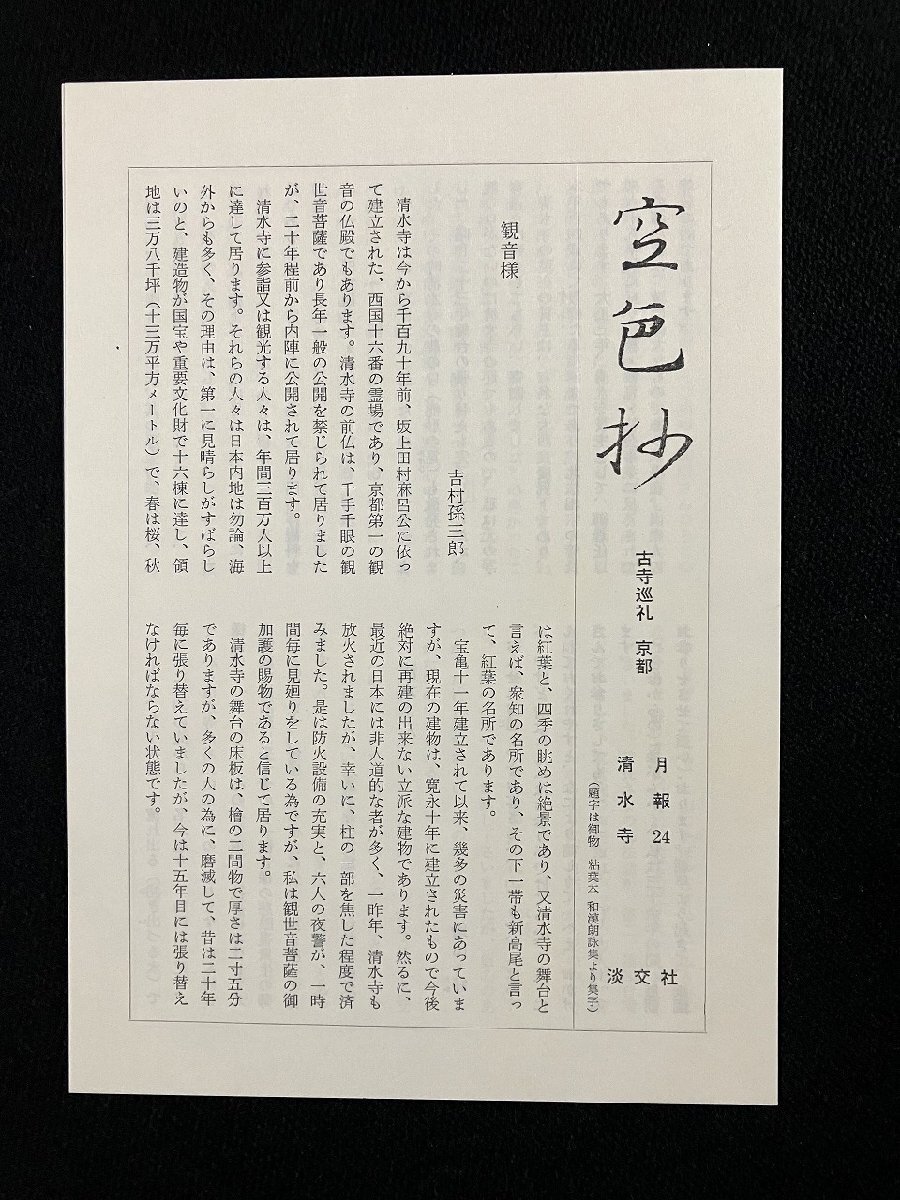 空色抄
古寺巡礼 京都
月報24
清水寺
(題字は御物 粘葉本 和漢朗詠集より集字)
淡交社
観音様
吉村孫三郎
清水寺は今から千百九十年前、坂上田村麻呂公に依っ
て建立された、西国十六番の霊場であり、京都第一の観
音の仏殿でもあります。清水寺の前仏は、千手千眼の観
世音菩薩であり長年一般の公開を禁じられて居りました
が、二十年程前から内陣に公開されて居ります。
清水寺に参詣又は観光する人々は、年間三百万人以上
に達して居ります。それらの人々は日本内地は勿論、海
外からも多く、その理由は、第一に見晴らしがすばらし
いのと、建造物が国宝や重要文化財で十六棟に達し、領
地は三万八千坪(十三万平方メートル)で、春は桜、秋
は紅葉と、四季の眺めは絶景であり、又清水寺の舞台と
言えば、衆知の名所であり、その下一帯も新高尾と言っ
て、紅葉の名所であります。
宝亀十一年建立されて以来、幾多の災害にあっていま
すが、現在の建物は、寛永十年に建立されたもので今後
絶対に再建の出来ない立派な建物であります。然るに、
最近の日本には非人道的な者が多く、一昨年、清水寺も
放火されましたが、幸いに、柱の一部を焦した程度で済
みました。是は防火設備の充実と、六人の夜警が、一時
間毎に見廻りをしている為ですが、私は観世音菩薩の御
加護の賜物であると信じて居ります。
清水寺の舞台の床板は、檜の二間物で厚さは二寸五分
でありますが、多くの人の為に、磨滅して、昔は二十年
毎に張り替えていましたが、今は十五年目には張り替え
なければならない状態です。